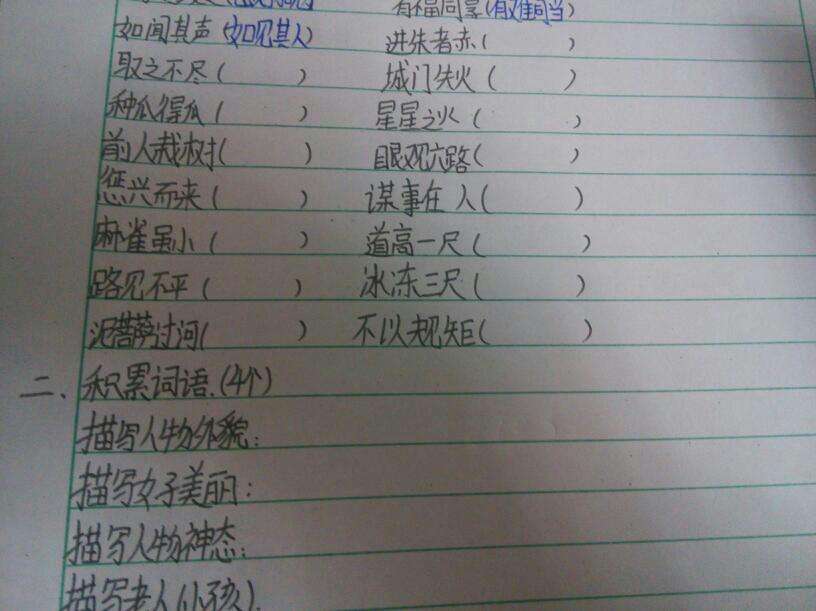 有福同享(有难同当)
如闻其声(如见其人) 进朱者赤( )
取之不尽( ) 城门失火( )
种瓜得瓜( ) 星星之火( )
前人栽树( ) 眼观六路( )
乘兴而来( ) 谋事在人( )
麻雀虽小( ) 道高一尺( )
路见不平( ) 冰冻三尺( )
泥菩萨过河( ) 不以规矩( )
二、积累词语.(4个)
描写人物外貌:
描写女子美丽:
描写人物神态:
描写老人(小孩)